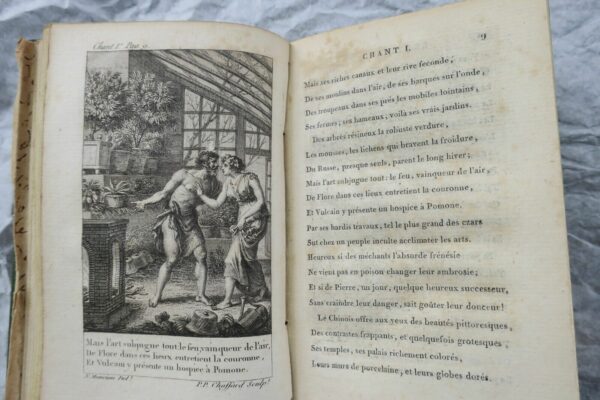 Chant Iᵉʳ Pag. 9
Mais l'art subjugue tout le feu, vainqueur de l'air,
De Flore dans ces lieux entretient la couronne,
Et Vulcain y présente un hospice à Pomone.
Monsiau Del.ᵗ
P.P. Choffard Sculp.ᵗ
CHANT I.
9
Mais ses riches canaux et leur rive féconde,
De ses moulins dans l'air, de ses barques sur l'onde,
Des troupeaux dans ses prés les mobiles lointains,
Ses fermes, ses hameaux, voilà ses vrais jardins.
Des arbres résineux la robuste verdure,
Les mousses, les lichens qui bravent la froidure,
Du Russe, presque seuls, parent le long hiver;
Mais l'art subjugue tout: le feu, vainqueur de l'air,
De Flore dans ces lieux entretient la couronne,
Et Vulcain y présente un hospice à Pomone.
Par ses hardis travaux, tel le plus grand des czars
Sut chez un peuple inculte acclimater les arts.
Heureux si des méchants l'absurde frénésie
Ne vient pas en poison changer leur ambrosie;
Et si de Pierre, un jour, quelque heureux successeur,
Sans craindre leur danger, sait goûter leur douceur!
Le Chinois offre aux yeux des beautés pittoresques,
Des contrastes frappants, et quelquefois grotesques;
Ses temples, ses palais richement colorés,
Leurs murs de porcelaine, et leurs globes dorés.